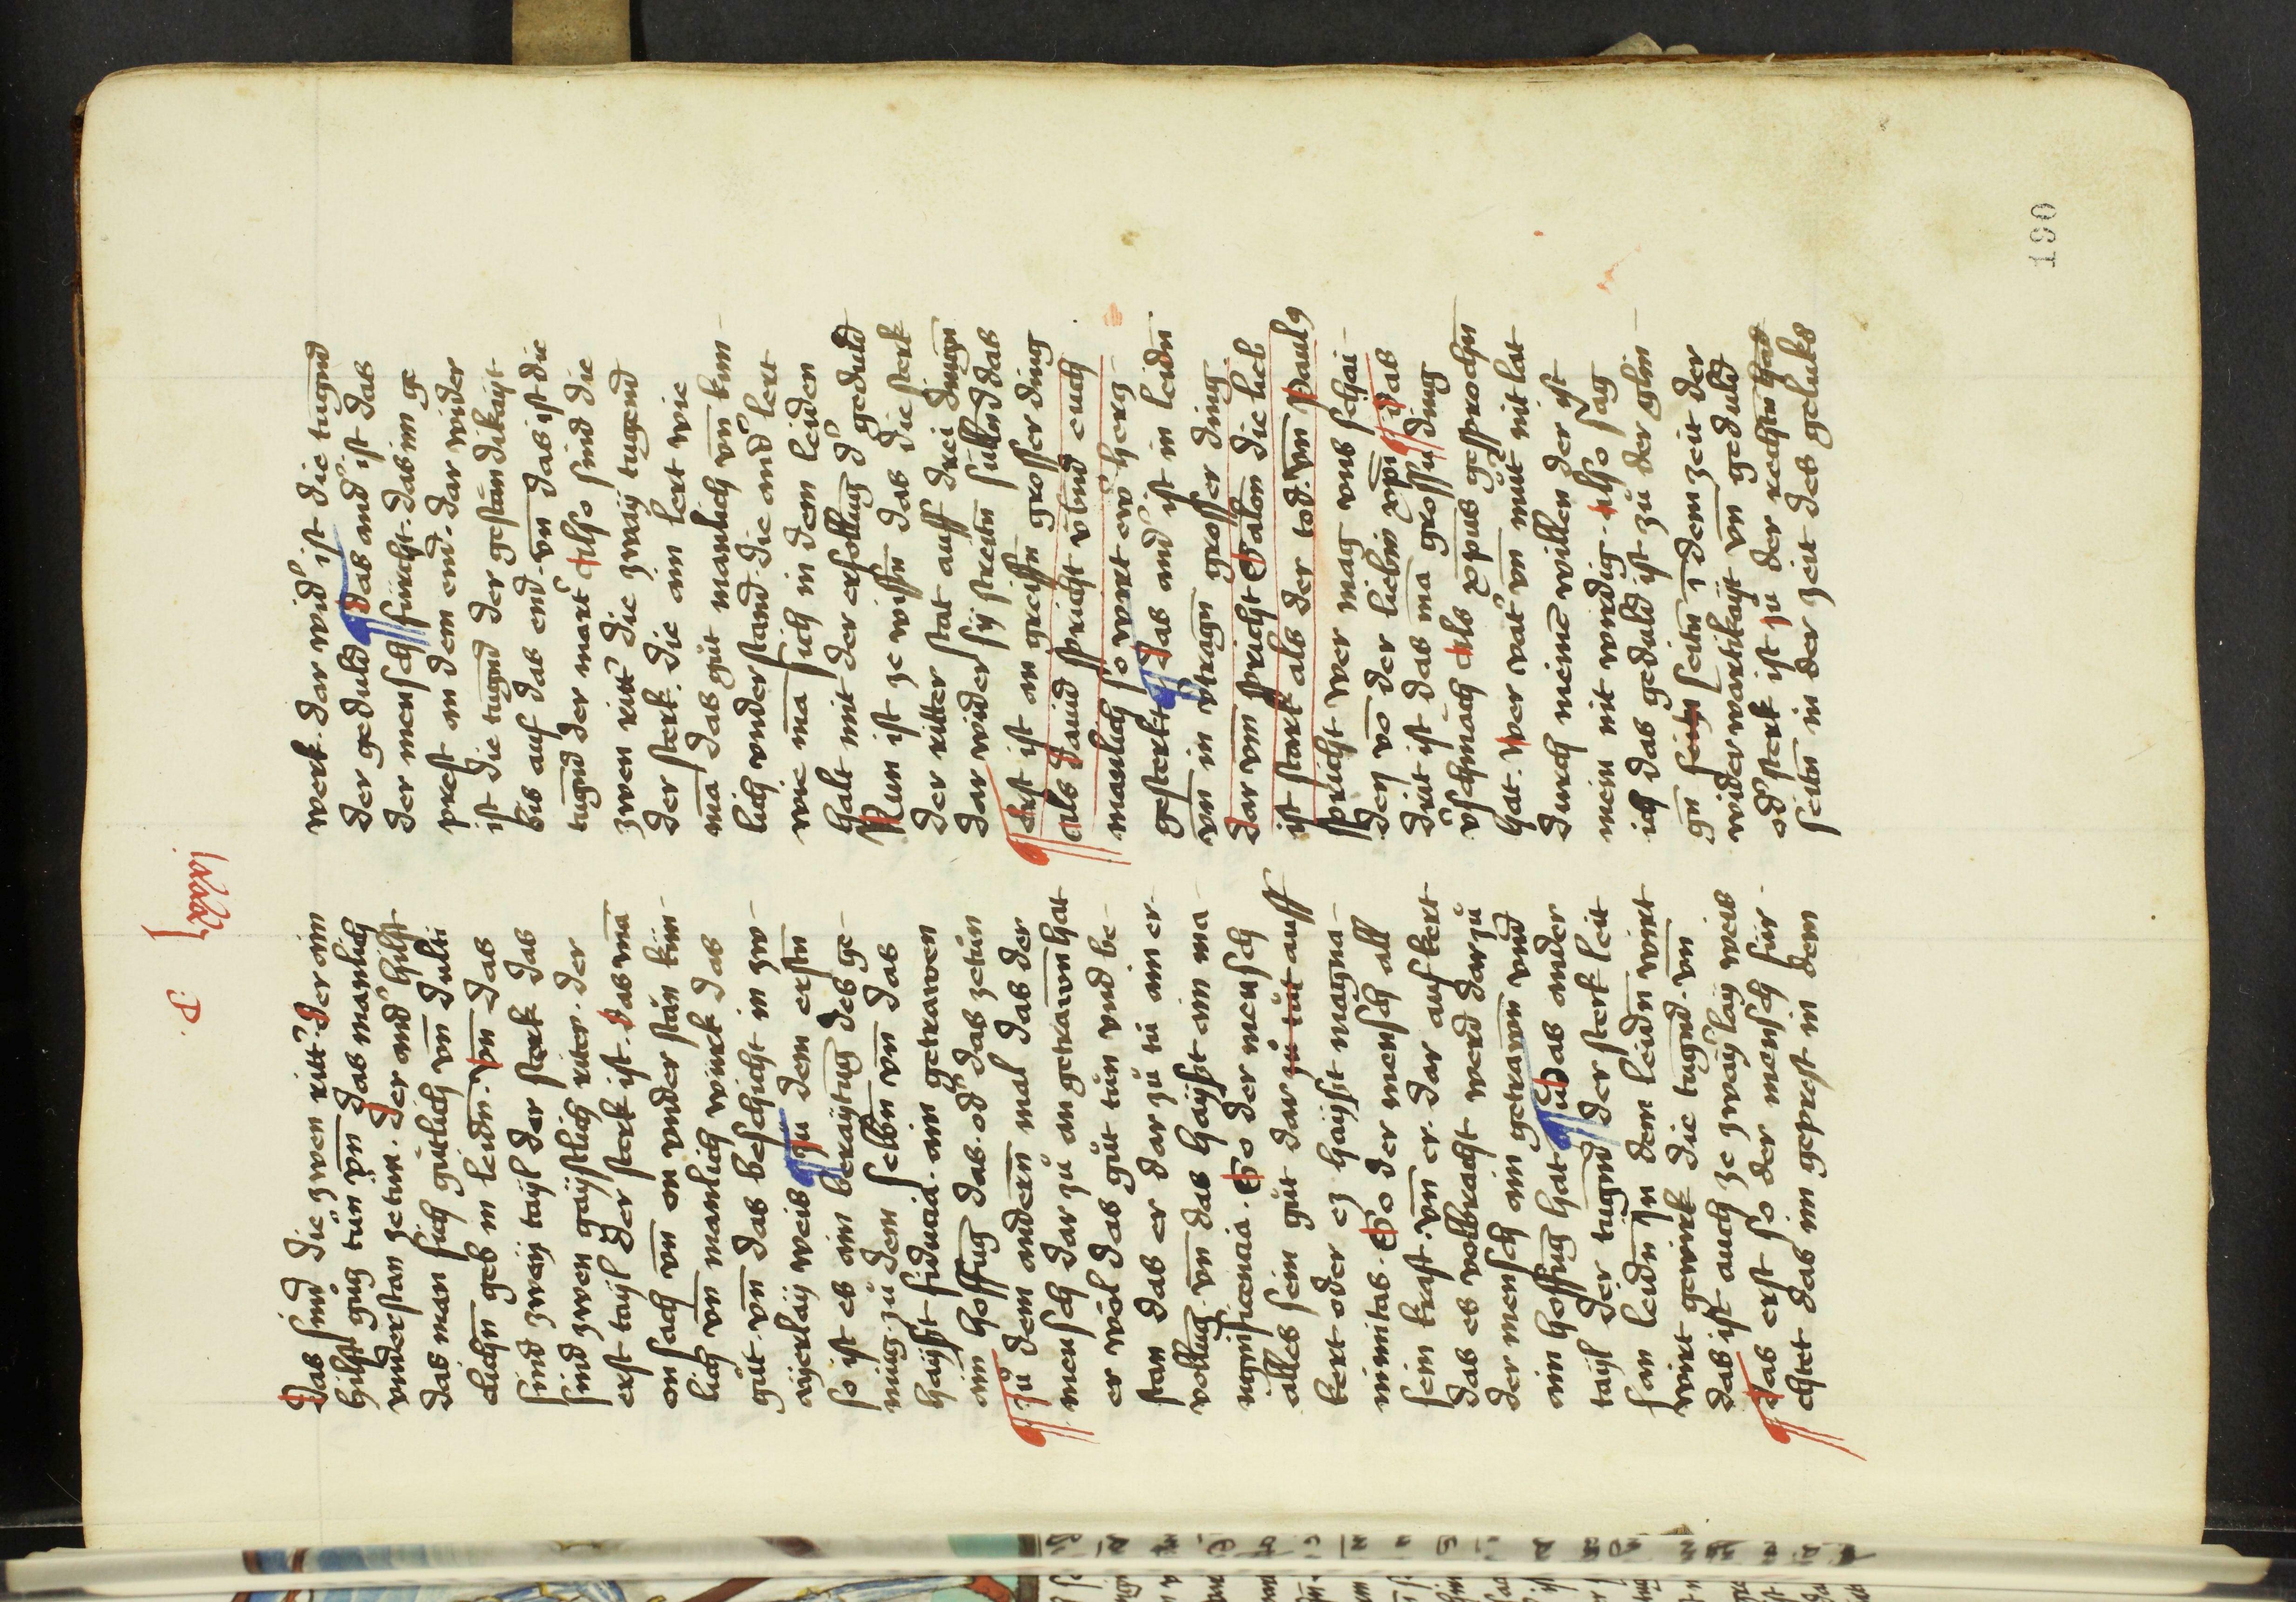 C lxxxvi
190
Das sind die zwen ritt' Der ain
hilfft gůtz tůn vn̄ das manlich
vnderstan ze tun. Der and' hilfft
das man sich gůtlich vn̄ dulti
clichn̄ geb in leidn̄. Vn̄ das
sind zwaÿ taÿl der sterk das
sind zwen gaÿstlich riter. der
erst taÿl der sterk ist. das mā
on sach vn̄ on vnder stăn kün-
lich vn̄ manlich würk das
gůt. vn̄ das beschicht in zw-
aÿerlaÿ weis ¶ Zu dem erstn̄
so ist es ain beraÿtūg des ge-
můtz. zů dem selbn̄ vn̄ das
haÿsst fiducia. ain getrawen
ain hoffūg das. od' das zetůn
¶ Zů dem andern mal das der
mensch dar zů an getrawn̄ hat
er wöl das gůt tůn vnd be-
stan das er dar zů tů ain er-
vollūg. vn̄ das haÿsst ain ma
ngnificencia. So der mensch
alles sein gůt dar zů tůt auff
kert oder ez haÿsst magna-
nimitas. So der mensch all
sein krafft. vn̄ er dar auf kert
das es volbracht werd dar zů
der mensch ain getrawn̄ vnd
ain hoffūg hat ¶ Das ander
taÿl der tugn̄d der sterk leit
san leidn̄ Jn dem leidn̄ wirt
wirt gewirk die tugn̄d. vn̄
das ist auch ze zwaÿ'laÿ weis
¶ Das erst so der mensch für-
chtet das im geprest in dem
werk. dar wid' ist die tugn̄d
der geduld ¶ Das and' ist das
der mensch fürcht. das im ge
prest an dem end. dar wider
ist die tugn̄d der gestăndikaÿt
bis auf das end. vn̄ das ist die
tugn̄d der mart' Also sind die
zwen ritt' die zwaÿ tugend
der sterk. die ain lert wie
mā das gůt manlich vn̄ kün-
lich vnderstand. die and' lert
wie mā sich in dem leiden
halt mit der ersollūg d' geduld
Nun ist ze wissn̄ das die sterk
der ritter stat auff drei dingn̄
dar wider sÿ streitn̄ sülln̄d das
¶ Erst ist an greiffn̄ grosser ding
als dauid spricht v̄bnd euch
manlich so wirt ew' hercz
gesterkt ¶ Das and' ist in leidn̄
vn̄ in v'tragn̄ grosser ding
dar vm̄ spricht Salon die lieb
ist stark als der tod. Vn̄ Paul9
spricht wer mag vns schai-
den vō der liebin xpi ¶ Das
drit ist das mā grossu ding
v'schmăch Als xpus gesprochn̄
hat. Wer vat' vn̄ můt' nit lat
durch meinē willen der ist
mein nit wirdig. Also sag
ich das geduld ist zů der glin-
gn̄ seitn̄ seitn̄ ī dem zeit der
widerwartikaÿt vn̄ geduld
od' sterk ist zů der rechtn̄ had
seitn̄ in der zeit des geluks